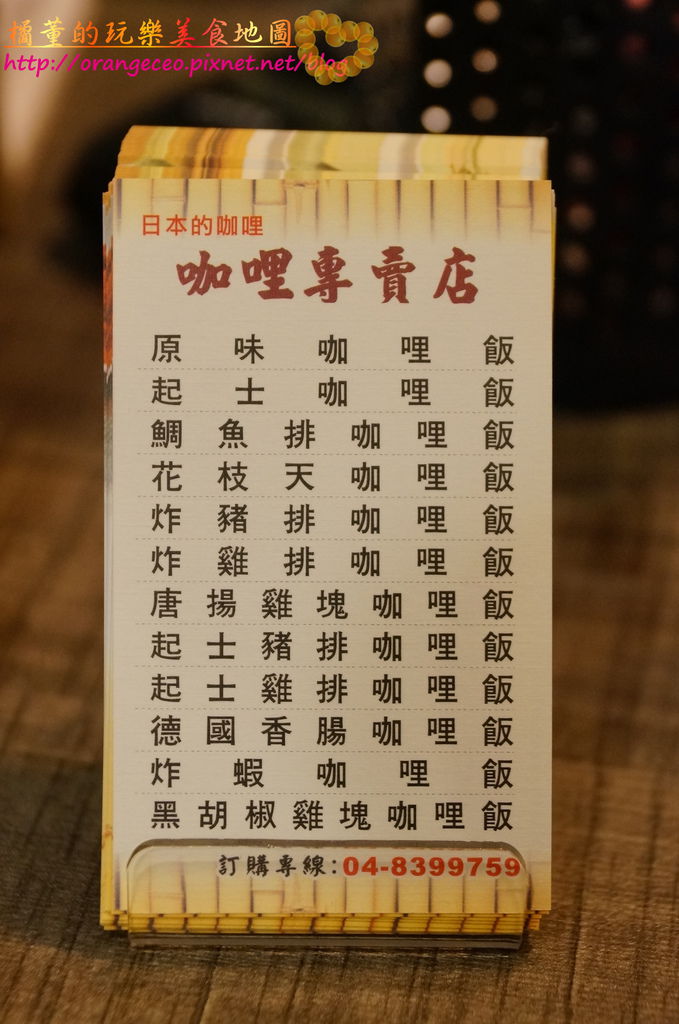 橘董的玩樂美食地圖
http://orangeceo.pixnet.net/blog
日本的咖哩
咖哩專賣店
原味咖哩飯
起士咖哩飯
鯛魚排咖哩飯
花枝天咖哩飯
炸豬排咖哩飯
炸雞排咖哩飯
唐揚雞塊咖哩飯
起士豬排咖哩飯
起士雞排咖哩飯
德國香腸咖哩飯
炸蝦咖哩飯
黑胡椒雞塊咖哩飯
訂購專線:04-8399759